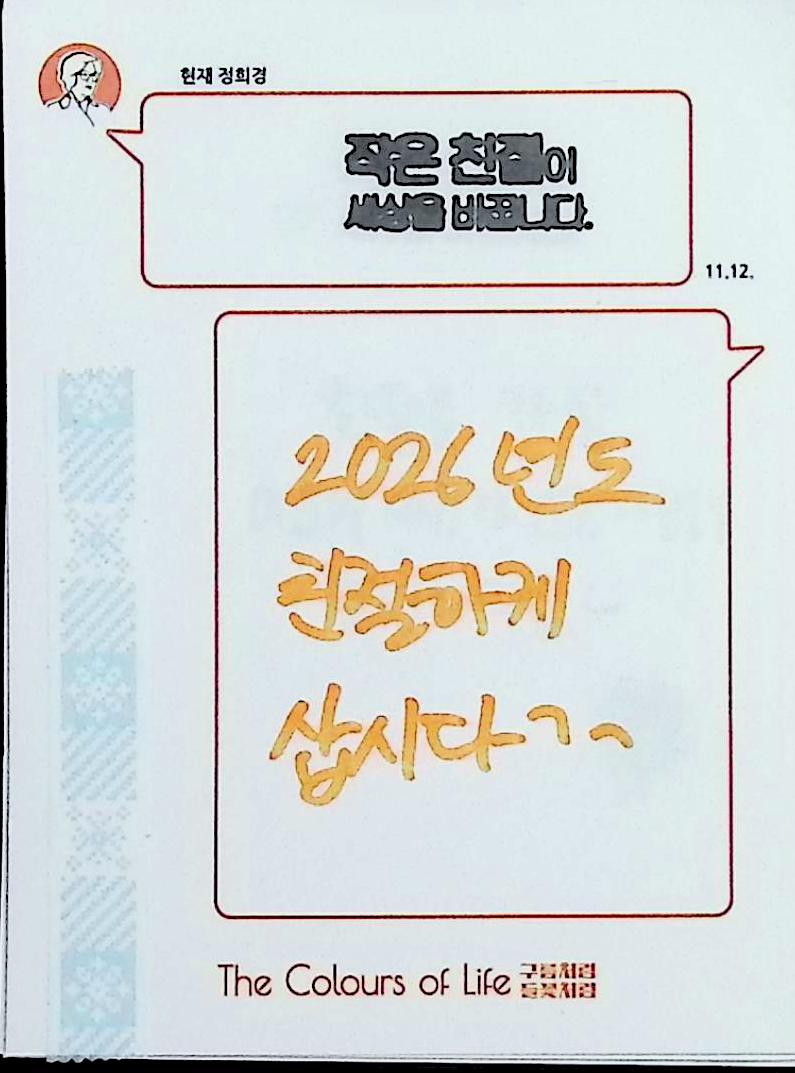 현재 정희경
작은 친절이
세상을 바꿉니다.
11.12.
2026년도
친절하게
삽시다^^
The Colours of Life 구름처럼
들꽃처럼